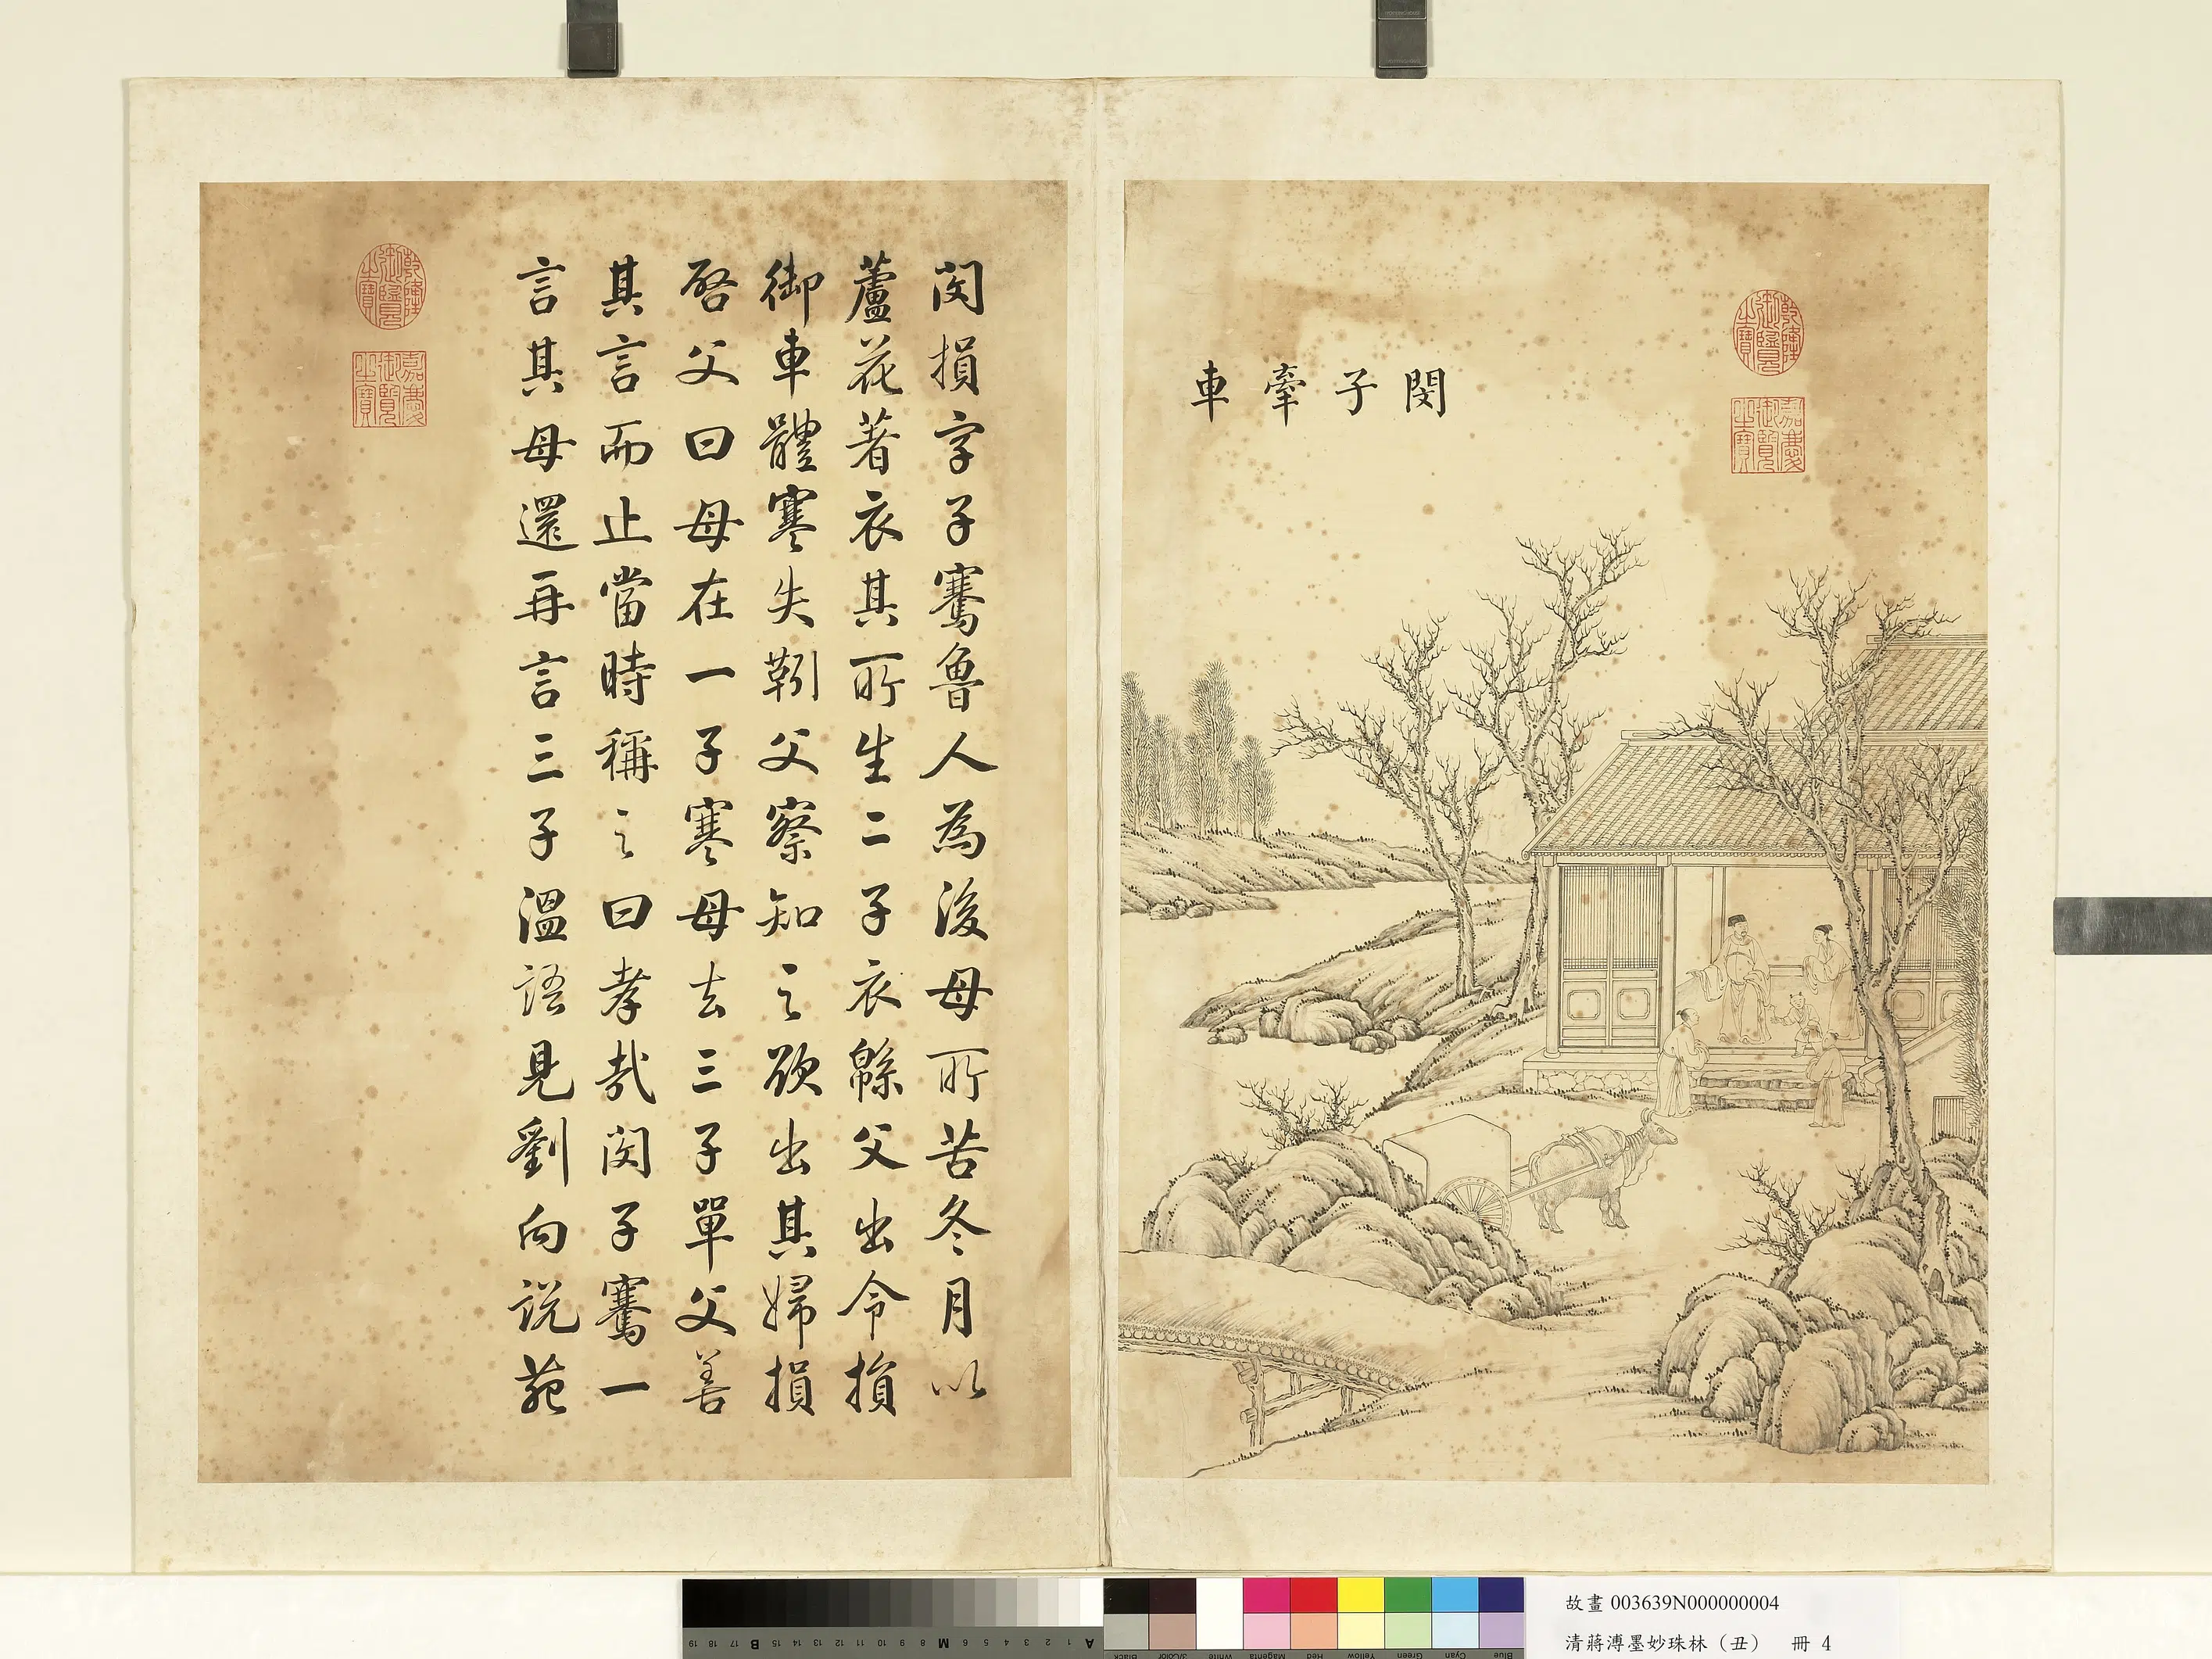 閔子牽車
乾隆御覽之寶
嘉慶御覽之寶
閔損字子騫魯人為後母所苦冬月以
蘆花著衣其所生二子衣緜父出令損
御車體寒失靷父察知之欲出其婦損
啓父曰母在一子寒母去三子單父善
其言而止當時稱之曰孝哉閔子騫一
言其母還再言三子溫語見劉向說苑
乾隆御覽之寶
嘉慶御覽之寶
故畫 003639N000000004
清蔣溥墨妙珠林（丑） 冊 4
19 18 17 16 15 B 14 13 12 11 10 9 8 7 M 6 5 4 3 2 1 A
Black 3/Color White Magenta Red Yellow Green Cyan Blue